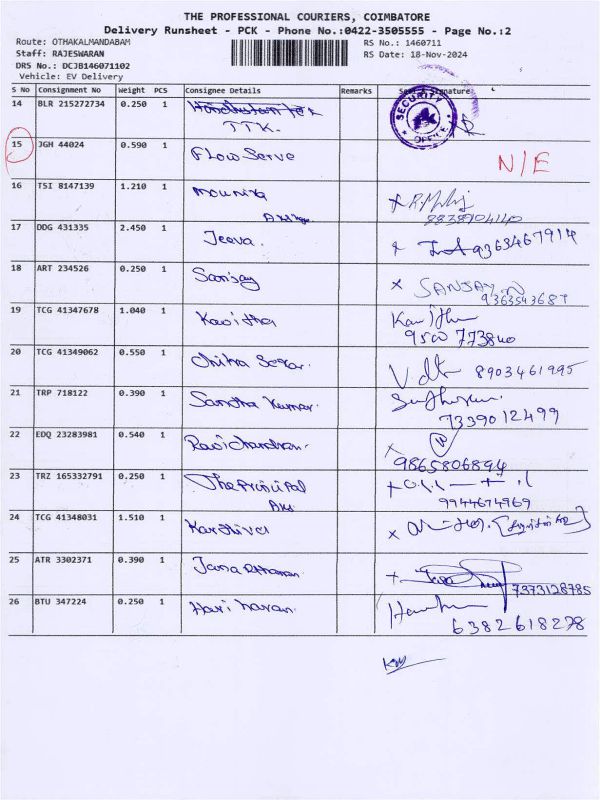 THE PROFESSIONAL COURIERS, COIMBATORE
Delivery Runsheet - PCK - Phone No.:0422-3505555 - Page No.:2
Route: OTHAKALMANDABAM
RS No.: 1460711
Staff: RAJESWARAN
RS Date: 18-Nov-2024
DRS No.: DCJB146071102
Vehicle: EV Delivery
S No Consignment No Weight PCS Consignee Details Remarks Signature
14 BLR 215272734 0.250 1 TTK.
SECURITY OFFICE
15 JGH 44024 0.590 1 Flow Serve N/E
16 TSI 8147139 1.210 1 Mouniya
17 DDG 431335 2.450 1 Jeeva. 9363467914
18 ART 234526 0.250 1 Sanjay SANJAY
19 TCG 41347678 1.040 1 Kavitha
9500 773840
20 TCG 41349062 0.550 1 Chitra Sekar. 8903461995
21 TRP 718122 0.390 1 Santha Kumar.
7339012499
22 EDQ 23283981 0.540 1 Ravichandran.
9865806894
23 TRZ 165332791 0.250 1 The Principal
9944674969
24 TCG 41348031 1.510 1 Karthivel
25 ATR 3302371 0.390 1 7373128785
26 BTU 347224 0.250 1 Hari haran.
6382618278